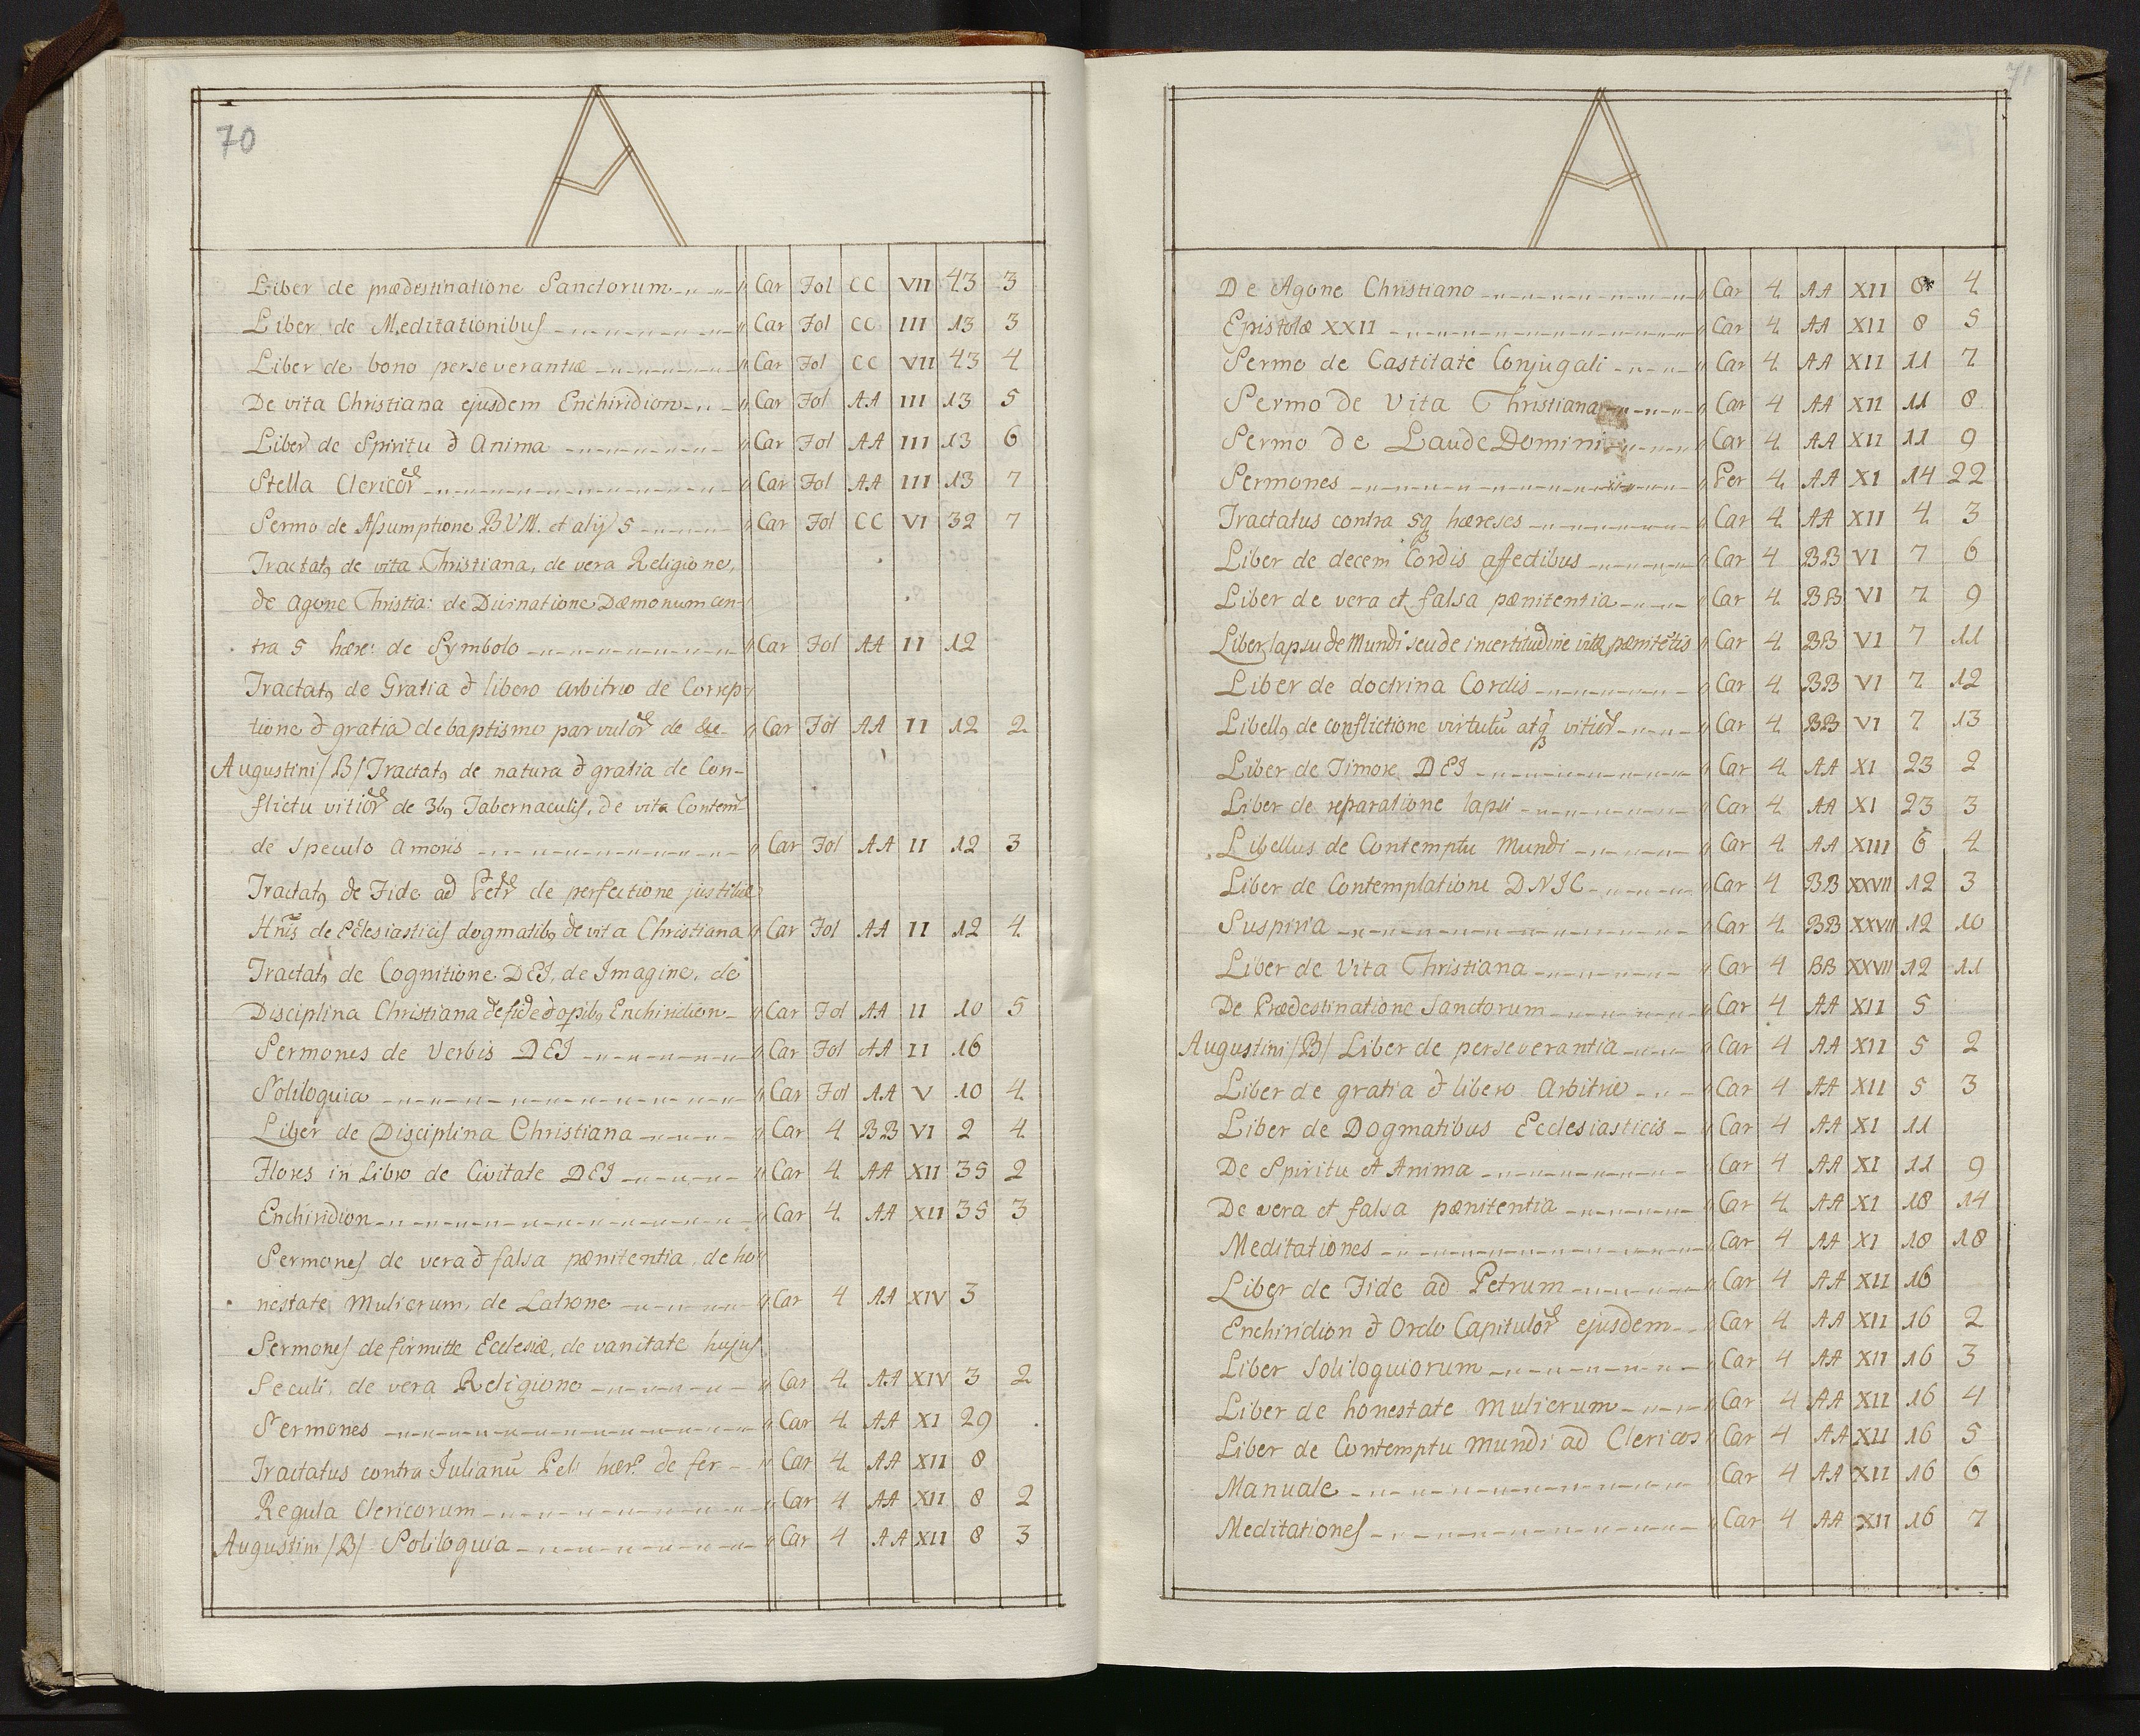 70
A
Liber de prædestinatione Sanctorum Car Fol CC VII 43 3
Liber de Meditationibus Car Fol CC III 13 3
Liber de bono perseverantiæ Car Fol CC VII 43 4
De vita Christiana ejusdem Enchiridion Car Fol AA III 13 5
Liber de Spiritu & Anima Car Fol AA III 13 6
Stella Clericor Car Fol AA III 13 7
Sermo de Assumptione BVM. et alij 5 Car Fol CC VI 32 7
Tractat9 de vita Christiana, de vera Religione,
de agone Christia: de Divinatione Dæmonum con-
tra 5 hære: de Symbolo Car Fol AA II 12
Tractat9 de Gratia & libero arbitrio de Correp-
tione & gratia de baptismo parvulor de Car Fol AA II 12 2
Augustini /B/ Tractat9 de natura & gratia de Con-
flictu vitior de 3b9 Tabernaculis, de vita Contem
de speculo amoris Car Fol AA II 12 3
Tractat9 de Fide ad Petr de perfectione justitiæ
Hnis de Eclesiasticis dogmatib9 de vita Christiana Car Fol AA II 12 4
Tractat9 de Cognitione DEI, de Imagine, de
Disciplina Christiana de fide & opib9 Enchiridion Car Fol AA II 10 5
Sermones de Verbis DEI Car Fol AA II 16
Soliloquia Car Fol AA V 10 4
Liber de Disciplina Christiana Car 4 BB VI 2 4
Flores in Libro de Civitate DEI Car 4 AA XII 35 2
Enchiridion Car 4 AA XII 35 3
Sermones de vera & falsa pænitentia, de ho
nestate Mulierum, de Latrone Car 4 AA XIV 3
Sermones de firmitte Ecclesiæ, de vanitate hujus
Seculi, de vera Religione Car 4 AA XIV 3 2
Sermones Car 4 AA XI 29
Tractatus contra Iulianū Pell hær: de fer Car 4 AA XII 8
Regula Clericorum Car 4 AA XII 8 2
Augustini /B/ Soliloquia Car 4 AA XII 8 3
71
A
De Agone Christiano Car 4 AA XII 8* 4
Epistolæ XXII Car 4 AA XII 8 5
Sermo de Castitate Conjugali Car 4 AA XII 11 7
Sermo de Vita Christiana Car 4 AA XII 11 8
Sermo de Laude Domini Car 4 AA XII 11 9
Sermones Per 4 AA XI 14 22
Tractatus contra 5q hæreses Car 4 AA XII 4 3
Liber de decem Cordis affectibus Car 4 BB VI 7 6
Liber de vera et falsa pænitentia Car 4 BB VI 7 9
Liber lapsu de Mundi seu de incertitudine vitæ pænitētis Car 4 BB VI 7 11
Liber de doctrina Cordis Car 4 BB VI 7 12
Libell9 de conflictione virtutū atq vitior Car 4 BB VI 7 13
Liber de Timore DEI Car 4 AA XI 23 2
Liber de reparatione lapsi Car 4 AA XI 23 3
Libellus de Contemptu Mundi Car 4 AA XIII 6 4
Liber de Contemplatione DNIC Car 4 BB XXVII 12 3
Suspiria Car 4 BB XXVII 12 10
Liber de Vita Christiana Car 4 BB XXVII 12 11
De Prædestinatione Sanctorum Car 4 AA XII 5
Augustini /B/ Liber de perseverantia Car 4 AA XII 5 2
Liber de gratia & libero Arbitrio Car 4 AA XII 5 3
Liber de Dogmatibus Ecclesiasticis Car 4 AA XI 11
De Spiritu et Anima Car 4 AA XI 11 9
De vera et falsa pænitentia Car 4 AA XI 18 14
Meditationes Car 4 AA XI 18 18
Liber de Fide ad Petrum Car 4 AA XII 16
Enchiridion & Ordo Capitulor ejusdem Car 4 AA XII 16 2
Liber Soliloquiorum Car 4 AA XII 16 3
Liber de honestate Mulierum Car 4 AA XII 16 4
Liber de Contemptu mundi ad Clericos Car 4 AA XII 16 5
Manuale Car 4 AA XII 16 6
Meditationes Car 4 AA XII 16 7